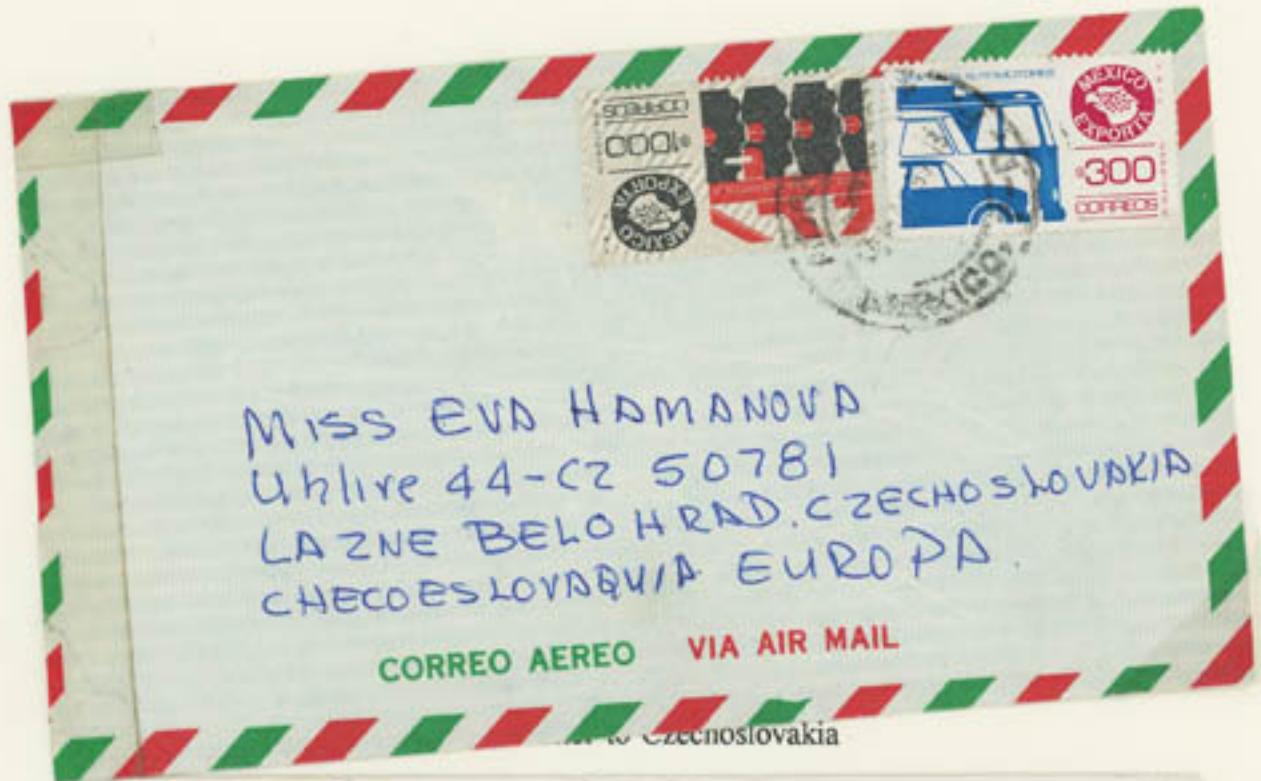 CORREOS
$1000
MEXICO EXPORTA
MEXICO EXPORTA
$300
CORREOS
MEXICO,
MISS EVA HAMANOVA
Uhlire 44-CZ 50781
LAZNE BELOHRAD. CZECHOSLOVAKIA
CHECOESLOVAQUIA EUROPA.
CORREO AEREO VIA AIR MAIL
to Czechoslovakia